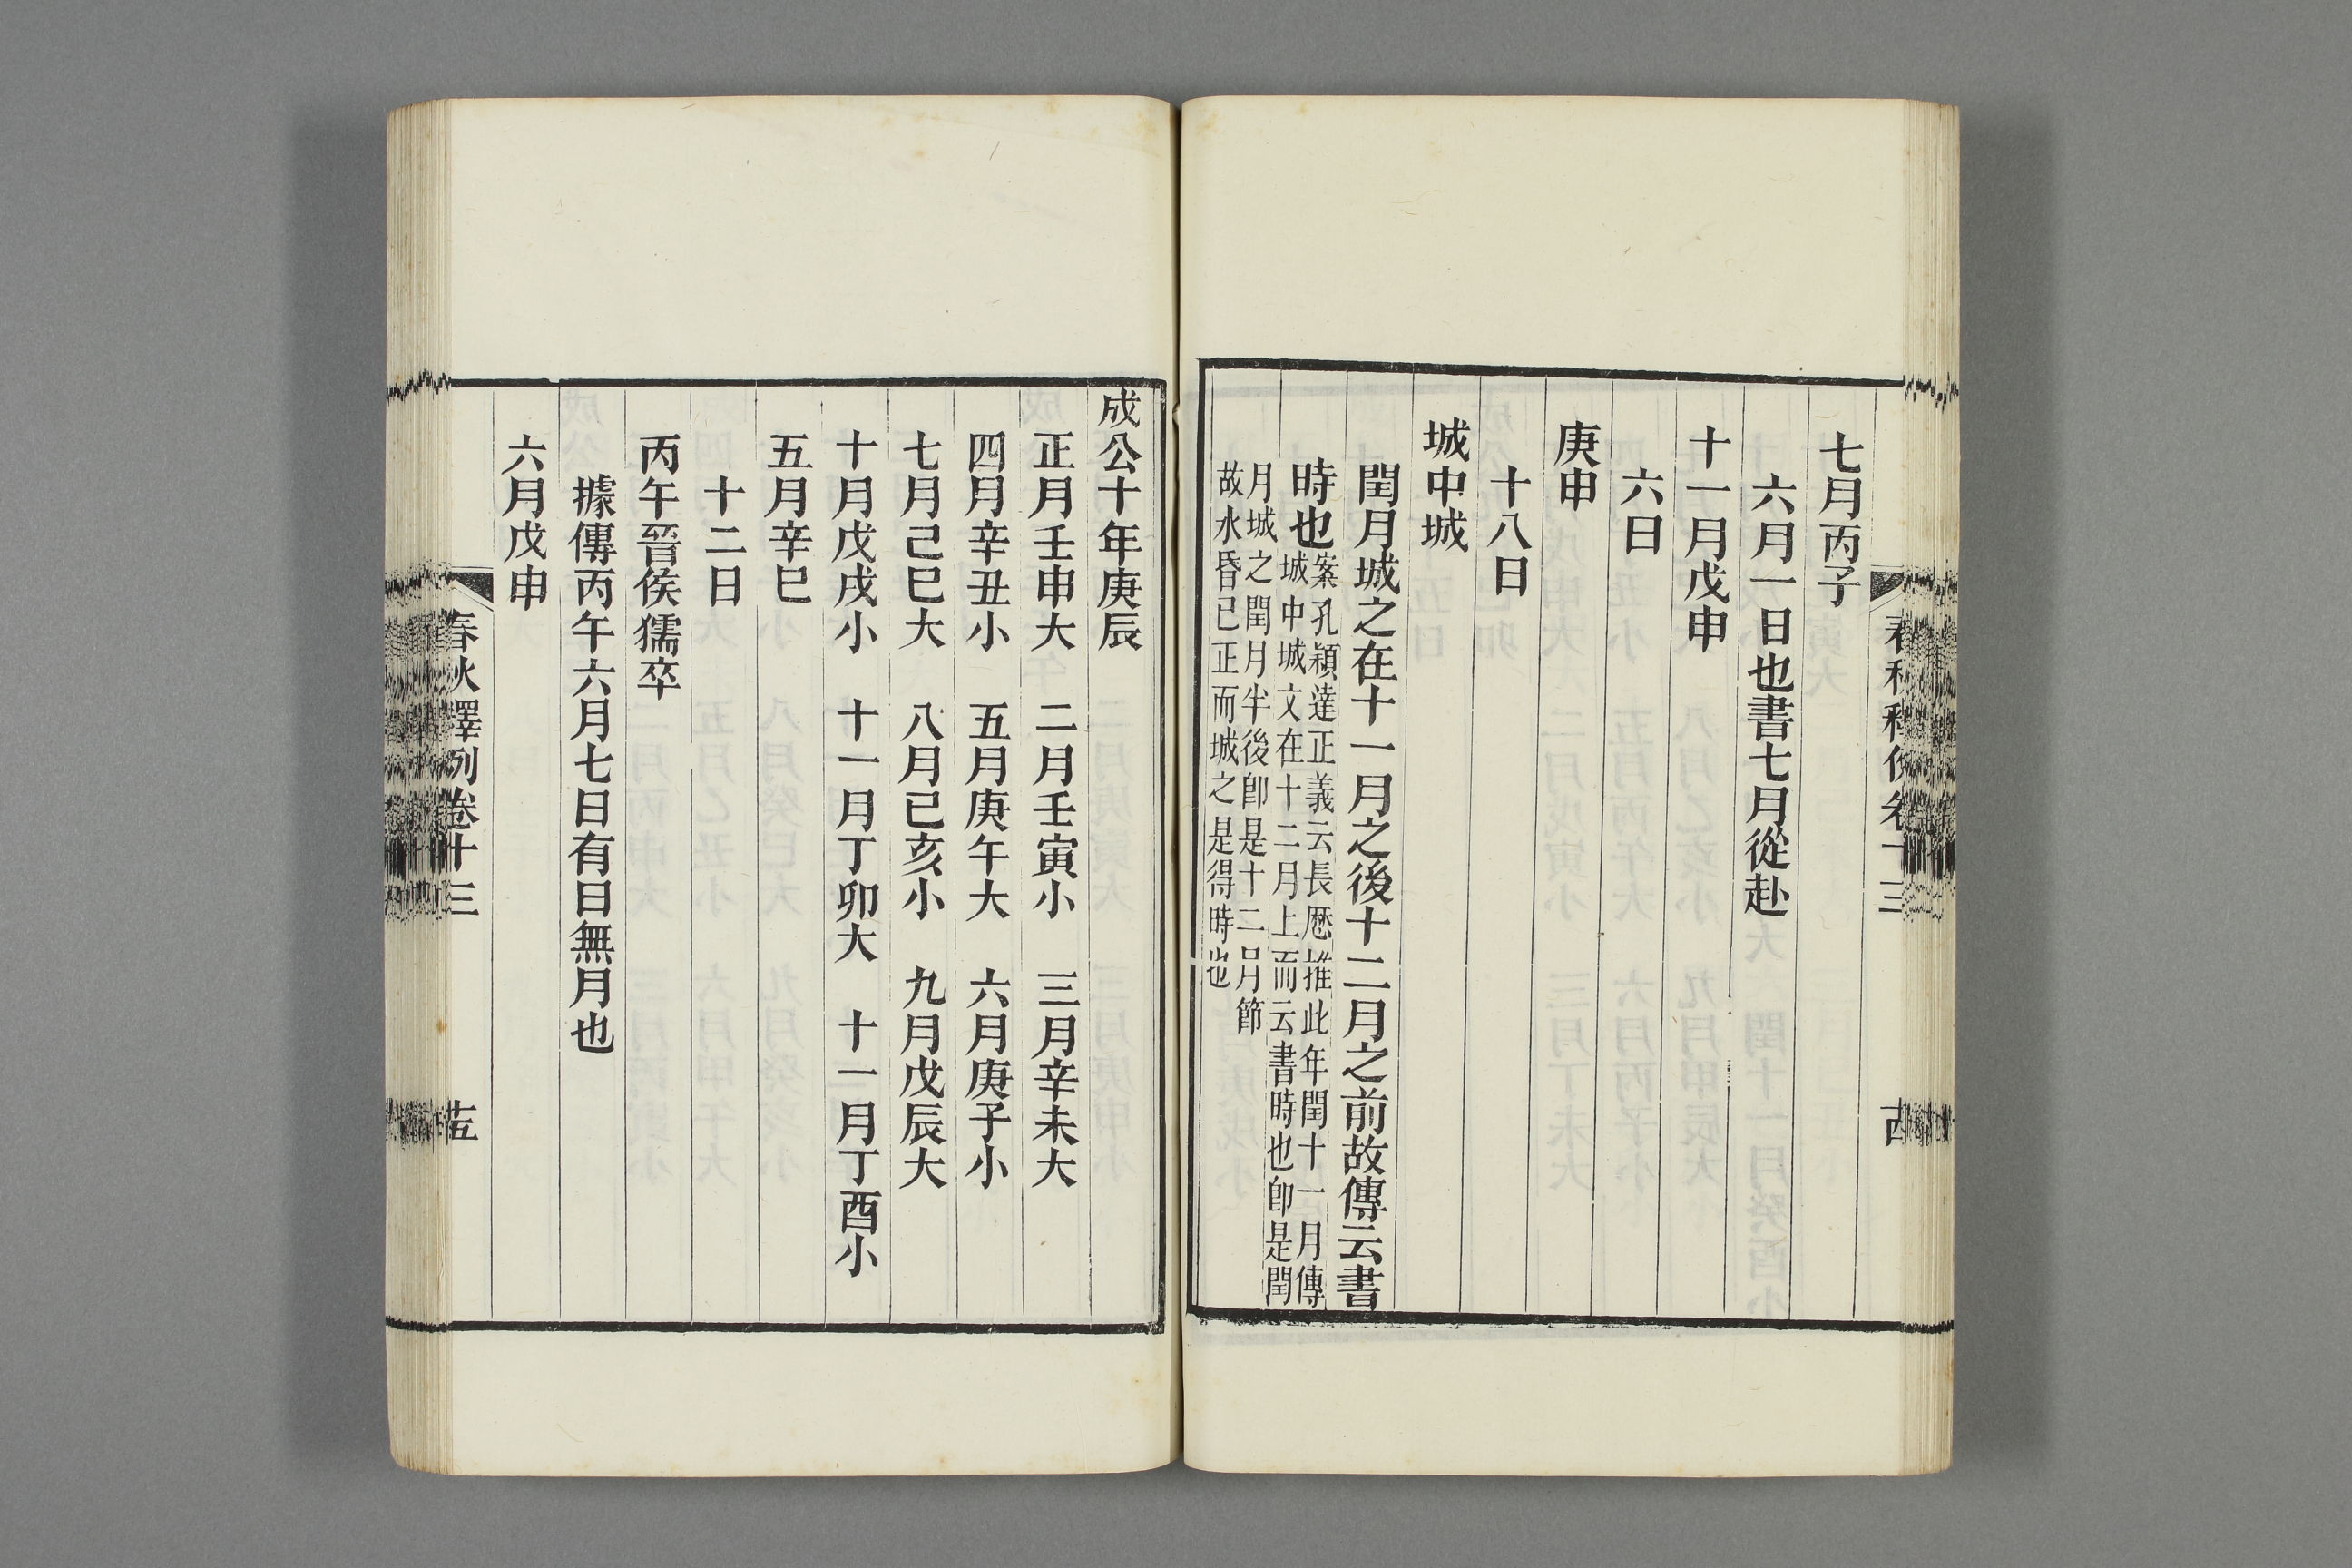 七月丙子
六月一日也書七月從赴
十一月戊申
六日
庚申
十八日
城中城
閏月城之在十一月之後十二月之前故傳云書
時也案孔穎達正義云長厯推此年閏十一月傳
城中城文在十二月上而云書時也卽是閏
月城之閏月半後卽是十二月節
故水昏已正而城之是得時也
成公十年庚辰
正月壬申大 二月壬寅小 三月辛未大
四月辛丑小 五月庚午大 六月庚子小
七月己巳大 八月已亥小 九月戊辰大
十月戊戌小 十一月丁卯大 十一月丁酉小
五月辛巳
十二日
丙午晉侯獳卒
據傳丙午六月七日有日無月也
六月戊申
春秋釋例卷十三